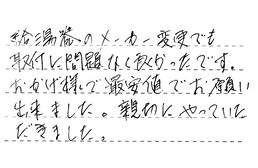 給湯器のメーカー変更でも
取付に問題なく良かったです。
おかげ様で最安値でお願い
出来ました。親切にやっていた
だきました。